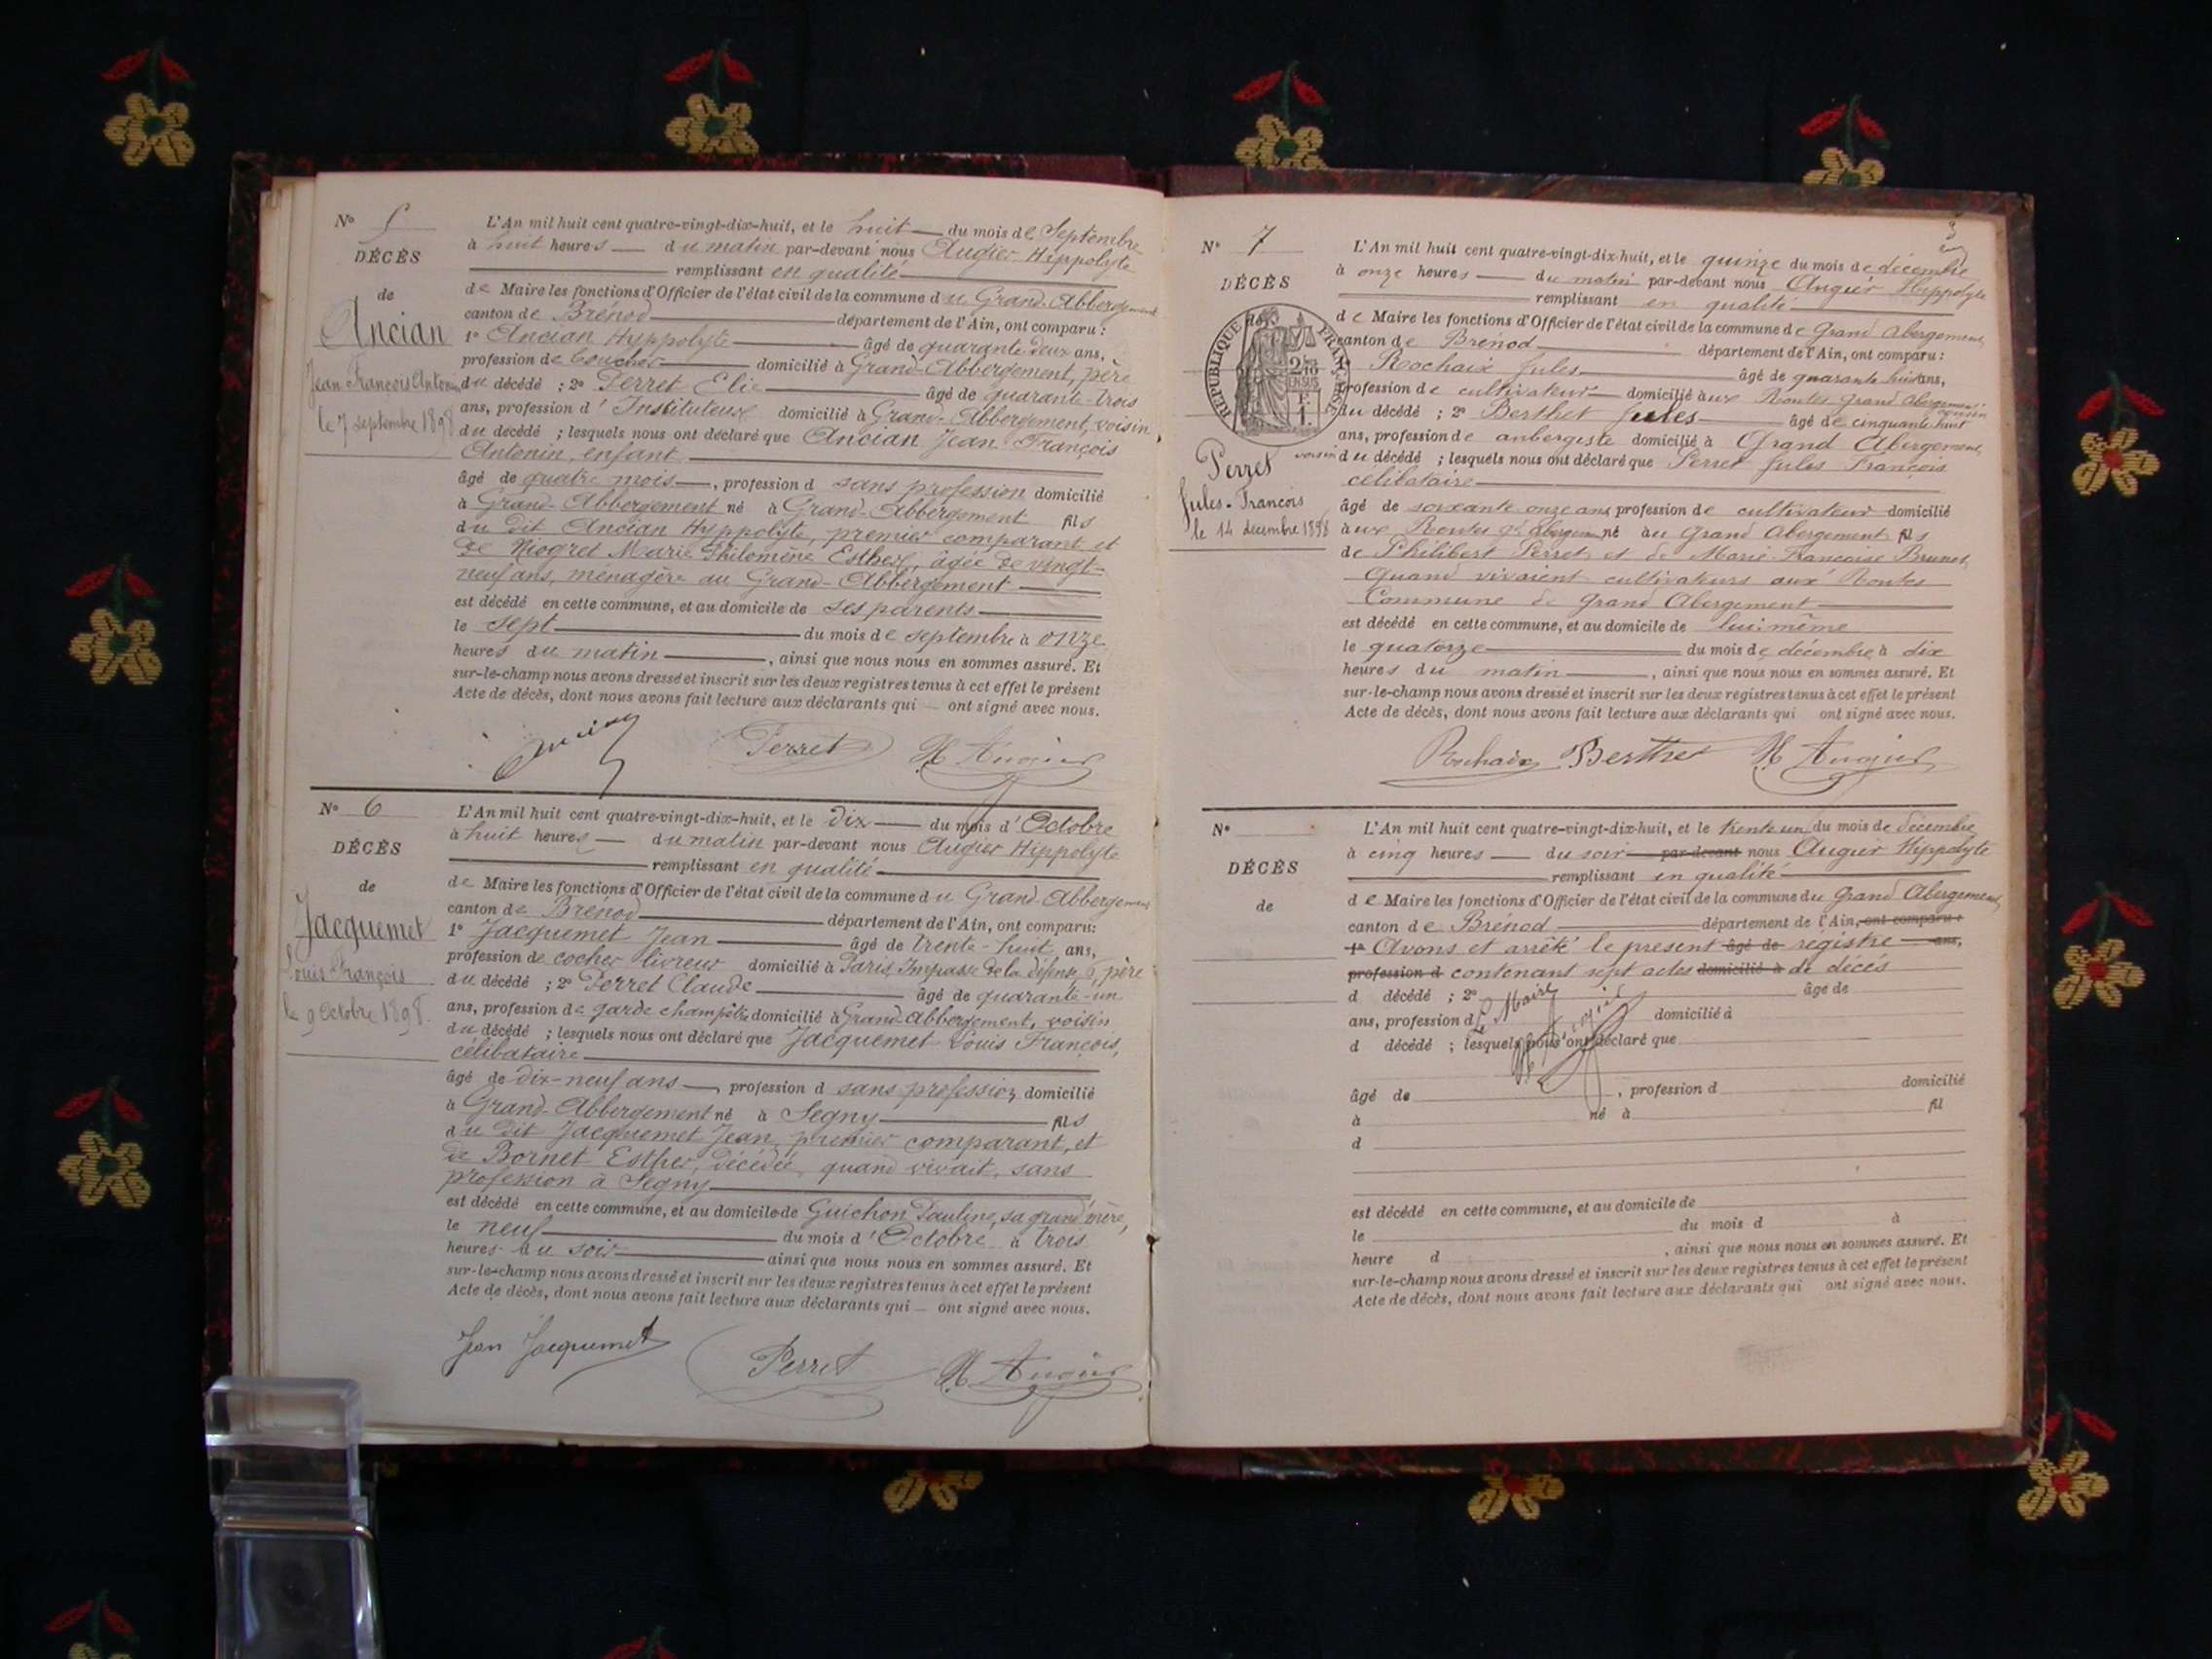 N° 5
DÉCÈS
de
Ancian
Jean François Antonin
le 7 septembre 1898
L'An mil huit cent quatre-vingt-dix-huit, et le huit du mois de Septembre
à huit heures du matin par-devant nous Augier Hippolyte
remplissant en qualité
de Maire les fonctions d'Officier de l'état civil de la commune du Grand-Abbergement
canton de Brénod département de l'Ain, ont comparu :
1° Ancian Hyppolyte âgé de quarante deux ans,
profession de boucher domicilié à Grand-Abbergement, père
du décédé ; 2° Perret Elie âgé de quarante-trois
ans, profession d'Instituteur domicilié à Grand-Abbergement, voisin
du décédé ; lesquels nous ont déclaré que Ancian Jean François
Antonin, enfant
âgé de quatre mois, profession d sans profession domicilié
à Grand-Abbergement né à Grand-Abbergement fils
du dit Ancian Hyppolyte, premier comparant et
de Niogret Marie Philomène Esther, âgée de vingt-
neuf ans, ménagère au Grand-Abbergement
est décédé en cette commune, et au domicile de ses parents
le sept du mois de septembre à onze
heures du matin, ainsi que nous nous en sommes assuré. Et
sur-le-champ nous avons dressé et inscrit sur les deux registres tenus à cet effet le présent
Acte de décès, dont nous avons fait lecture aux déclarants qui ont signé avec nous.
Ancian Perret H Augier
N° 6
DÉCÈS
de
Jacquemet
Louis François
le 9 Octobre 1898.
L'An mil huit cent quatre-vingt-dix-huit, et le dix du mois d'Octobre
à huit heures du matin par-devant nous Augier Hippolyte
remplissant en qualité
de Maire les fonctions d'Officier de l'état civil de la commune du Grand-Abbergement
canton de Brénod département de l'Ain, ont comparu:
1° Jacquemet Jean âgé de trente-huit ans,
profession de cocher livreur domicilié à Paris, Impasse de la défense, 6, père
du décédé ; 2° Perret Claude âgé de quarante-un
ans, profession de garde champêtre domicilié à Grand-Abbergement, voisin
du décédé ; lesquels nous ont déclaré que Jacquemet Louis François,
célibataire
âgé de dix-neuf ans, profession d sans profession, domicilié
à Grand-Abbergement né à Segny fils
du dit Jacquemet Jean, premier comparant, et
de Bornet Esther, décédée, quand vivait, sans
profession à Segny
est décédé en cette commune, et au domicile de Guichon Pauline, sa grand'mère,
le neuf du mois d'Octobre à trois
heures du soir ainsi que nous nous en sommes assuré. Et
sur-le-champ nous avons dressé et inscrit sur les deux registres tenus à cet effet le présent
Acte de décès, dont nous avons fait lecture aux déclarants qui ont signé avec nous.
Jean Jacquemet Perret H Augier
N° 7
DÉCÈS
de
RÉPUBLIQUE FRANÇAISE
Perret
Jules-François
le 14 décembre 1898
L'An mil huit cent quatre-vingt-dix-huit, et le quinze du mois de décembre
à onze heures du matin par-devant nous Augier Hippolyte
remplissant en qualité
de Maire les fonctions d'Officier de l'état civil de la commune de Grand Abergement
canton de Brenod département de l'Ain, ont comparu :
Rochaix Jules âgé de quarante huit ans,
profession de cultivateur domicilié aux Routes Grand Abergement cousin
du décédé ; 2° Berthet Jules âgé de cinquante huit
ans, profession de aubergiste domicilié à Grand Abergement,
voisin du décédé ; lesquels nous ont déclaré que Perret Jules François
célibataire
âgé de soixante onze ans profession de cultivateur domicilié
aux Routes Gd Abergemt né au Grand Abergement fils
de Philibert Perret et de Marie Françoise Brunet
Quand vivaient cultivateurs aux Routes
Commune de Grand Abergement
est décédé en cette commune, et au domicile de lui-même
le quatorze du mois de décembre à dix
heures du matin, ainsi que nous nous en sommes assuré. Et
sur-le-champ nous avons dressé et inscrit sur les deux registres tenus à cet effet le présent
Acte de décès, dont nous avons fait lecture aux déclarants qui ont signé avec nous.
Rochaix Berthet H Augier
N°
DÉCÈS
de
L'An mil huit cent quatre-vingt-dix-huit, et le trente un du mois de décembre
à cinq heures du soir par-devant nous Augier Hippolyte
remplissant en qualité
de Maire les fonctions d'Officier de l'état civil de la commune du Grand Abergement
canton de Brénod département de l'Ain, ont comparu :
1° Avons et arrêté le présent âgé de registre ans,
profession d contenant sept actes domicilié à de décés
d décédé ; 2° âgé de
ans, profession d Le Maire domicilié à
d décédé ; lesquels nous ont déclaré que
H. Augier
âgé de , profession d domicilié
à né à fil
d
est décédé en cette commune, et au domicile de
le du mois d à
heure d , ainsi que nous nous en sommes assuré. Et
sur-le-champ nous avons dressé et inscrit sur les deux registres tenus à cet effet le présent
Acte de décès, dont nous avons fait lecture aux déclarants qui ont signé avec nous.